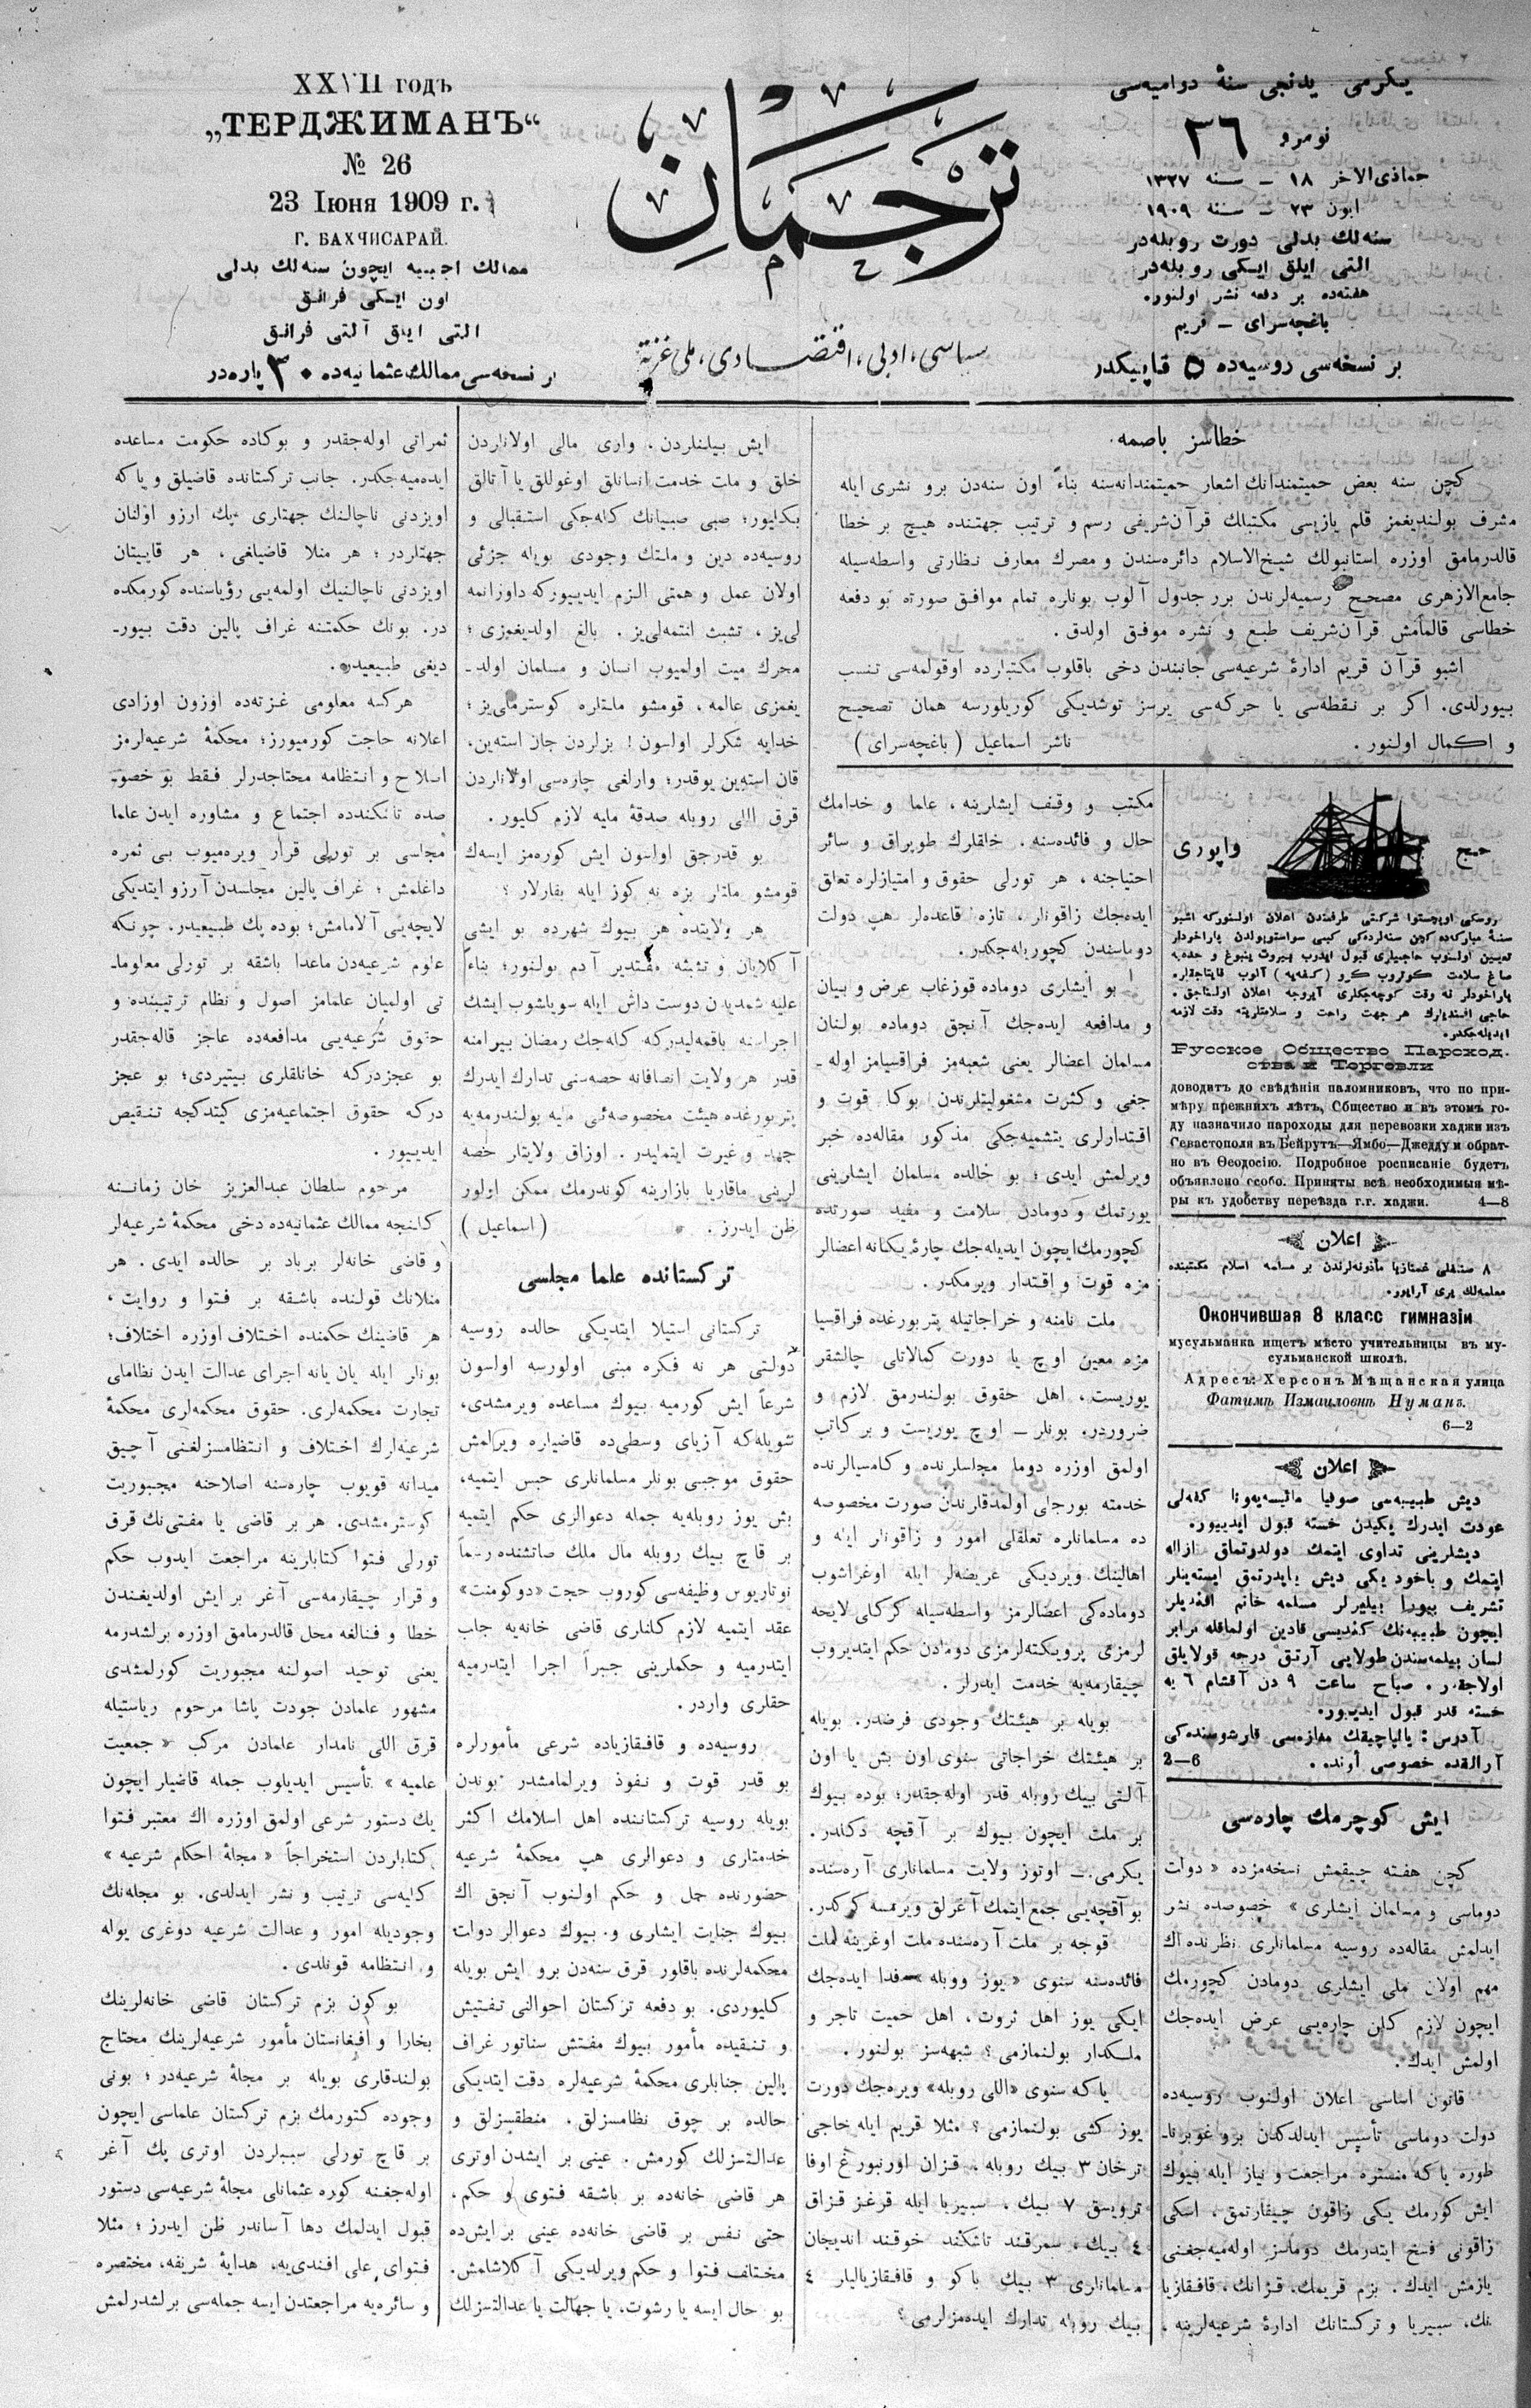 XXVII годъ
„ТЕРДЖИМАНЪ“
№ 26
23 Іюня 1909 г.
Г. БАХЧИСАРАЙ.
ممالك اجنبيه ايچون سنه‌لك بدلى
اون ايكى فرانق
التى ايلق آلتى فرانق
بر نسخه‌سى ممالك عثمانيه‌ده ٣٠ پاره‌در
ترجمان
سياسى، ادبى، اقتصادى، ملى غزته
يكرمى يدنجى سنهٔ دواميه‌سى
نومرو ٣٦
جماذى‌الاخر ١٨ – سنه ١٣٢٧
ايون ٢٣ – سنه ١٩٠٩
سنه‌لك بدلى دورت روبله‌در
التى ايلق ايكى روبله‌در
هفته‌ده بر دفعه نشر اولنور.
باغچه‌سراى – قريم
بر نسخه‌سى روسيه‌ده ٥ قاپيكدر
خطاسز باصمه.
كچن سنه بعض حميتمندانك اشعار حميتمندانه‌سنه بناءً اون سنه‌دن برو نشرى ايله
مشرف بولنديغمز قلم يازيسى مكتبلك قرآن‌شريفى رسم و ترتيب جهتنده هيچ بر خطا
قالدرمامق اوزره استانبولك شيخ‌الاسلام دائره‌سندن و مصرك معارف نظارتى واسطه‌سيله
جامع‌الازهرى مصحح رسميه‌لرندن برر جدول آلوب بونلره تمام موافق صورته بو دفعه
خطاسى قالمامش قرآن‌شريف طبع و نشره موفق اولدق.
اشبو قرآن قريم ادارهٔ شرعيه‌سى جانبندن دخى باقلوب مكتبلرده اوقولمه‌سى تنسب
بيورلدى. اكر بر نقطه‌سى يا حركه‌سى يرسز توشديكى كوريلورسه همان تصحيح
و اكمال اولنور. ناشر اسماعيل (باغچه‌سراى)
حج واپورى
روسكى اوبچستوا شركتى طرفندن اعلان اولنوركه اشبو
سنهٔ مباركه‌ده كچن سنه‌لرده‌كى كبى سواستوپولدن پاراخودلر
تعيين اولنوب حاجيلرى قبول ايدرب بيروت ينبوغ و جده‌يه
صاغ سلامت كوتروب كرو (كفه‌يه) آلوب قايتاجقلر.
پاراخودلر نه وقت كوچه‌جكلرى آيروجه اعلان اولناجق.
حاجى افنديلرك هر جهت راحت و سلامتلرينه دقت لازمه
ايديله‌جكدر.
Русское Общество Пароход.
ства и Торговли
доводитъ до свѣдѣнія паломниковъ, что по при-
мѣру прежнихъ лѣтъ, Общество и въ этомъ го-
ду назначило пароходы для перевозки хаджи изъ
Севастополя въ Бейрутъ—Ямбо—Джедду и обрат-
но въ Ѳеодосію. Подробное росписаніе будетъ
объявлено особо. Приняты всѣ необходимыя мѣ-
ры къ удобству переѣзда г.г. хаджи. 4—8
اعلان
٨ صنفلى غمنازيا مأذونه‌لرندن بر مسلمه اسلام مكتبنده
معلمه‌لك يرى آرايور.
Окончившая 8 класс гимназіи
мусульманка ищетъ мѣсто учительницы въ му-
сульманской школѣ.
Адресъ: Херсонъ Мѣщанская улица
Фатимѣ Измаиловнѣ Нуманъ.
6—2
اعلان
ديش طبيبه‌سى صوفيا كفه‌لى
عودت ايدرك يكيدن خسته قبول ايدييور.
ديشلرينى تداوى ايتمك دولدرتماق ازاله
ايتمك و ياخود يكى ديش ياپدرتمق ايسته‌ينلر
تشريف بيورا بيليرلر مسلمه خانم افنديلر
ايچون طبيبه‌نك كنديسى قادين اولماقله برابر
لسان بيلمه‌سندن طولايى آرتق درجه قولايلق
اولاجقدر. صباح ساعت ٩ دن آقشام ٦ يه
خسته قدر قبول ايدييور.
آدرس: يالپاچيقك مغازه‌سى قارشوسنده‌كى
آرالقده خصوصى أونده. 2—6
ايش كوچرمك چاره‌سى
كچن هفته چيقمش نسخه‌مزده «دولت
دوماسى و مسلمان ايشلرى» خصوصده نشر
ايدلمش مقاله‌ده روسيه مسلمانلرى نظرنده اك
مهم اولان ملى ايشلرى دومادن كچورمك
ايچون لازم كلن چاره‌يى عرض ايده‌جك
اولمش ايدك.
قانون اساسى اعلان اولنوب روسيه‌ده
دولت دوماسى تأسيس ايدلدكدن برو غوبرنا-
طوره ياكه منستره مراجعت و نياز ايله بيوك
ايش كورمك يكى زاقون چيقارتمق، اسكى
زاقونى فسخ ايتدرمك دوماسز اوله‌ميه‌جغنى
يازمش ايدك. بزم قريمك، قزانك، قافقازيا
نك، سيبريا و تركستانك ادارهٔ شرعيه‌لرينه،
مكتب و وقف ايشلرينه، علما و خدامك
حال و فائده‌سنه. خلقلرك طوپراق و سائر
احتياجنه، هر تورلى حقوق و امتيازلره تعلق
ايده‌جك زاقونلر، تازه قاعده‌لر هپ دولت
دوماسندن كچوريله‌جكدر.
بو ايشلرى دوماده قوزغاب عرض و بيان
و مدافعه ايده‌جك آنجق دوماده بولنان
مسلمان اعضالر يعنى شعبه‌مز فراقسيامز اوله-
جغى و كثرت مشغوليتلرندن بوكا قوت و
اقتدارلرى يتشميه‌جكى مذكور مقاله‌ده خبر
ويرلمش ايدى؛ بو حالده مسلمان ايشلرينى
يورتمك و دومادن سلامت و مفيد صورتده
كچورمك ايچون ايديله‌جك چارهٔ يكانه اعضالر
مزه قوت و اقتدار ويرمكدر.
ملت نامنه و خراجاتيله پتربورغده فراقسيا
مزه معين اوچ يا دورت كمالاتلى چالشقر
يوريست، اهل حقوق بولندرمق لازم و
ضروردر. بونلر – اوچ يوريست و بر كاتب
اولمق اوزره دوما مجلسلرنده و كامسيالرنده
خدمته بورجلى اولمدقلرندن صورت مخصوصه
ده مسلمانلره تعلقلى امور و زاقونلر ايله و
اهالينك ويرديكى عريضه‌لر ايله اوغراشوب
دوماده‌كى اعضالرمز واسطه‌سيله كركلى لايحه
لرمزى پرويكته‌لرمزى دومادن حكم ايتديروب
چيقارمه‌يه خدمت ايدرلر.
بويله بر هيئتك وجودى فرضدر. بويله
بر هيئتك خراجاتى سنوى اون بش يا اون
آلتى بيك روبله قدر اوله‌جقدر؛ بوده بيوك
بر ملت ايچون بيوك بر آقچه دكلدر.
يكرمى – اوتوز ولايت مسلمانلرى آره‌سنده
بو آقچه‌يى جمع ايتمك آغرلق ويرمسه كركدر.
قوجه بر ملت آره‌سنده ملت اوغرينه ملت
فائده‌سنه سنوى «يوز روبله» فدا ايده‌جك
ايكى يوز اهل ثروت، اهل حميت تاجر و
ملكدار بولنمازمى؟ شبهه‌سز بولنور.
ياكه سنوى «اللى روبله» ويره‌جك دورت
يوز كشى بولنمازمى؟ مثلا قريم ايله حاجى
ترخان ٣ بيك روبله. قزان اورنبورغ اوفا
ترويسق ٧ بيك، سيبريا ايله قرغز قزاق
٤ بيك، سمرقند تاشكند خوقند انديجان
مسلمانلرى ٣ بيك باكو و قافقازياليلر ٤
بيك روبله تدارك ايده‌مزلرمى؟
ايش بيلنلردن. وارى مالى اولانلردن
خلق و ملت خدمت انسانلق اوغوللق يا آتالق
بكليور؛ صبى صبيانك كله‌جكى استقبالى و
روسيه‌ده دين و ملتك وجودى بويله جزئى
اولان عمل و همتى الزم ايدييوركه داوزانمه
لى‌يز، تشبث ائتمه‌لى‌يز. بالغ اولديغمزى؛
محرك ميت اولميوب انسان و مسلمان اولد-
يغمزى عالمه، قومشو ملتلره كوسترملى‌يز؛
خدايه شكرلر اولسون! بزلردن جان استه‌ين،
قان استه‌ين يوقدر؛ وارلغى چاره‌سى اولانلردن
قرق اللى روبله صدقهٔ مليه لازم كليور.
بو قدرجق اولسون ايش كوره‌مز ايسه‌ك
قومشو ملتلر بزه نه كوز ايله بقارلار؟
هر ولايتده هر بيوك شهرده بو ايشى
آكلايان و تشبثه مقتدير آدم بولنور؛ بناءً
عليه شمديدن دوست داش ايله سويلشوب ايشك
اجراسنه باقمه‌ليدركه كله‌جك رمضان بيرامنه
قدر هر ولايت انصافانه حصه‌سنى تدارك ايدرك
پتربورغده هيئت مخصوصه‌ئى مليه بولندرمه‌يه
جهد و غيرت ايتمليدر. اوزاق ولايتلر حصه
لرينى ماقاريا بازارينه كوندرمك ممكن اولور
ظن ايدرز. (اسماعيل)
تركستانده علما مجلسى
تركستانى استيلا ايتديكى حالده روسيه
دولتى هر نه فكره مبنى اولورسه اولسون
شرعاً ايش كورميه بيوك مساعده ويرمشدى،
شويله‌كه آزياى وسطى‌ده قاضيلره ويرلمش
حقوق موجبى بونلر مسلمانلرى حبس ايتميه،
بش يوز روبله‌يه جمله دعوالرى حكم ايتميه
بر قاچ بيك روبله مال ملك صاتشنده رسماً
نوتاريوس وظيفه‌سى كوروب حجت «دوكومنت»
عقد ايتميه لازم كلنلرى قاضى خانه‌يه جلب
ايتدرميه و حكملرينى جبراً اجرا ايتدرميه
حقلرى واردر.
روسيه‌ده و قافقازياده شرعى مأمورلره
بو قدر قوت و نفوذ ويرلمامشدر بوندن
بويله روسيه تركستاننده اهل اسلامك اكثر
خدمتلرى و دعوالرى هپ محكمهٔ شرعيه
حضورنده حل و حكم اولنوب آنجق اك
بيوك جنايت ايشلرى و بيوك دعوالر دولت
محكمه‌لرنده باقلور قرق سنه‌دن برو ايش بويله
كليوردى. بو دفعه تركستان احوالنى تفتيش
و تنقيده مأمور بيوك مفتش سناتور غراف
پالين جنابلرى محكمهٔ شرعيه‌لره دقت ايتديكى
حالده بر چوق نظامسزلق. منطقسزلق و
عدالتسزلك كورمش. عينى بر ايشدن اوترى
هر قاضى خانه‌ده بر باشقه فتوى و حكم.
حتى نفس بر قاضى خانه‌ده عينى بر ايش‌ده
مختلف فتوا و حكم ويرلديكى آكلاشلمش.
بو حال ايسه يا رشوت. يا جهالت يا عدالتسزلك
ثمراتى اوله‌جقدر و بوكاده حكومت مساعده
ايده‌ميه‌جكدر. جانب تركستانده قاضيلق و ياكه
اويزدنى ناچالنك جهتلرى پك ارزو اولنان
جهتلردر؛ هر منلا قاضيلغى، هر قاپيتان
اويزدنى ناچالنيك اولمه‌يى رؤياسنده كورمكده
در. بونك حكمتنه غراف پالين دقت بيور-
ديغى طبيعيدر.
هركسه معلومى غزته‌ده اوزون اوزادى
اعلانه حاجت كورميورز؛ محكمهٔ شرعيه‌لرمز
اصلاح و انتظامه محتاجدرلر فقط بو خصو-
صده تاشكندده اجتماع و مشاوره ايدن علما
مجلسى بر تورلى قرار ويره‌ميوب بى ثمره
داغلمش؛ غراف پالين مجلسدن آرزو ايتديكى
لايحه‌يى آلامامش؛ بوده پك طبيعيدر، چونكه
علوم شرعيه‌دن ماعدا باشقه بر تورلى معلوما-
تى اولميان علمامز اصول و نظام ترتيبنده و
حقوق شرعيه‌يى مدافعه‌ده عاجز قاله‌جقدر
بو عجزدركه خانلقلرى بيتيردى؛ بو عجز
دركه حقوق اجتماعيه‌مزى كيتدكجه تنقيص
ايدييور.
مرحوم سلطان عبدالعزيز خان زماننه
كلنجه ممالك عثمانيه‌ده دخى محكمهٔ شرعيه‌لر
و قاضى خانه‌لر برباد بر حالده ايدى. هر
منلانك قولنده باشقه بر فتوا و روايت،
هر قاضينك حكمنده اختلاف اوزره اختلاف؛
بونلر ايله يان يانه اجراى عدالت ايدن نظاملى
تجارت محكمه‌لرى. حقوق محكمه‌لرى محكمهٔ
شرعيه‌لرك اختلاف و انتظامسزلغنى آچيق
ميدانه قويوب چاره‌سنه اصلاحنه مجبوريت
كوسترمشدى. هر بر قاضى يا مفتى‌نك قرق
تورلى فتوا كتابلرينه مراجعت ايدوب حكم
و قرار چيقارمه‌سى آغر بر ايش اولديغندن
خطا و فنالغه محل قالدرمامق اوزره برلشدرمه
يعنى توحيد اصولنه مجبوريت كورلمشدى
مشهور علمادن جودت پاشا مرحوم رياستيله
قرق اللى نامدار علمادن مركب «جمعيت
علميه» تأسيس ايديلوب جمله قاضيلر ايچون
يك دستور شرعى اولمق اوزره اك معتبر فتوا
كتابلردن استخراجاً «مجلهٔ احكام شرعيه»
كليه‌سى ترتيب و نشر ايدلدى. بو مجله‌نك
وجوديله امور و عدالت شرعيه دوغرى يوله
و انتظامه قونلدى.
بو كون بزم تركستان قاضى خانه‌لرينك
بخارا و افغانستان مأمور شرعيه‌لرينك محتاج
بولندقلرى بويله بر مجلهٔ شرعيه‌در؛ بونى
وجوده كتورمك بزم تركستان علماسى ايچون
بر قاچ تورلى سببلردن اوترى پك آغر
اوله‌جغنه كوره عثمانلى مجلهٔ شرعيه‌سى دستور
قبول ايدلمك دها آساندر ظن ايدرز؛ مثلا
فتواى على افندى‌يه، هدايهٔ شريفه، مختصره
و سائره‌يه مراجعتدن ايسه جمله‌سى برلشدرلمش